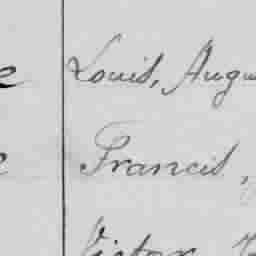 Louis, Augu
Francis,
Victor